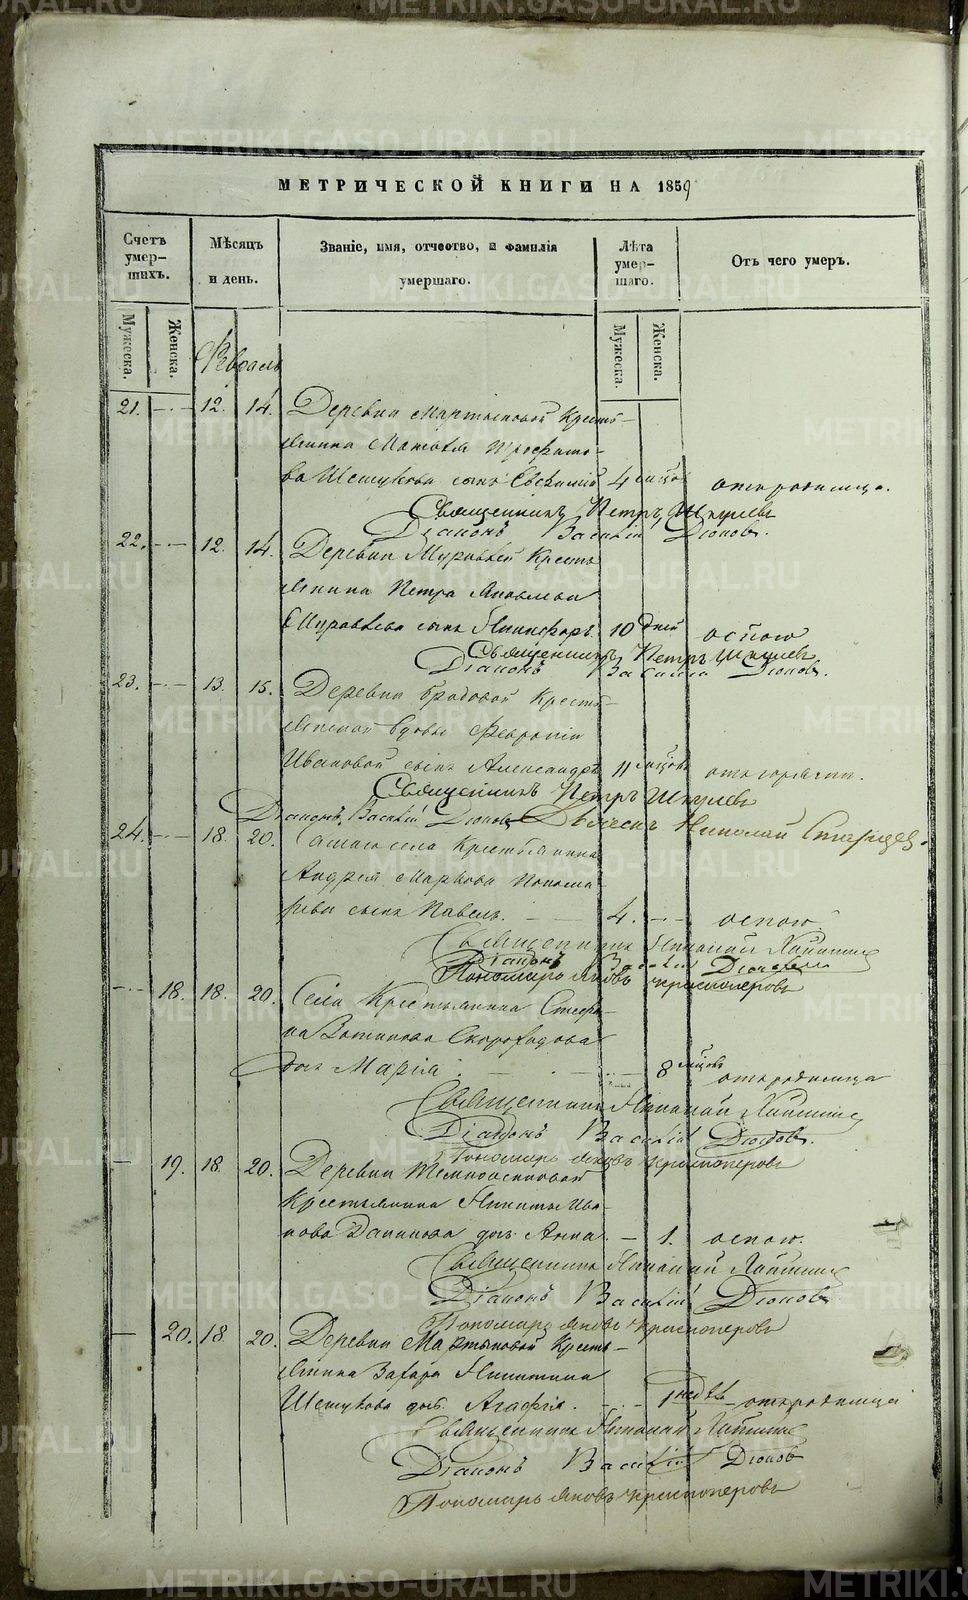 МЕТРИЧЕСКОЙ КНИГИ НА 1859
Счетъ умер-шихъ.
Мѣсяцъ и день.
Званіе, имя, отчество, и фамилія умершаго.
Лѣта умер-шаго.
Отъ чего умеръ.
Мужеска. Женска. Мужеска. Женска.
Февраль
21. 12. 14. Деревни Мартыновой Кресть-
янина Матвѣя
Шешукова сынъ Евѳимій 4 мѣсяц. отъ родимца.
Священникъ Петръ Шкулевъ
Діаконъ Василій Дюковъ.
22. 12. 14. Деревни Муравьей Кресть
янина Петра Яковлева
Муравьева сынъ Никифоръ. 10 дней оспою
Священникъ Петръ Шкулевъ
Діаконъ Василій Дюковъ.
23. 13. 15. Деревни Бродовой Кресть-
янской вдовы Февроніи
Ивановой сынъ Александръ 11 мѣсцовъ отъ горячки.
Священникъ Петръ Шкулевъ
Діаконъ Василій Дюковъ Дьячекъ Николай
24. 18. 20. Самаго села Крестьянина
Андрея Маркова Понома-
рева сынъ Павелъ. 4. оспою
Священникъ
Діаконъ Василій Дюковъ
Пономарь Яковъ Красноперовъ
18. 18. 20. Села Крестьянина Стефа-
на Вотинова Скороходова
дочь Марія 8 мѣсцовъ отъ родимца
Священникъ
Діаконъ Василій Дюковъ.
Пономарь Яковъ Красноперовъ
19. 18. 20. Деревни Темноосиновой
Крестьянина Никиты Ива-
нова Данилова дочь Анна. 1. оспою.
Священникъ
Діаконъ Василій Дюковъ
Пономарь Яковъ Красноперовъ
20. 18 20. Деревни Мартыновой Кресть-
янина Захара Никитина
Шешукова дочь Агафія. 1 недѣл отъ родимца
Священникъ
Діаконъ Василій Дюковъ
Пономарь Яковъ Красноперовъ
METRIKI.GASO-URAL.RU